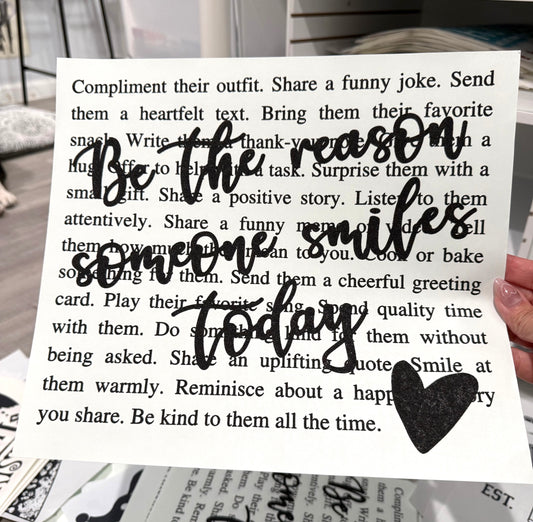 Compliment their outfit. Share a funny joke. Send
them a heartfelt text. Bring them their favorite
snack. Write them a thank-you note. Give them a
hug. Offer to help with a task. Surprise them with a
small gift. Share a positive story. Listen to them
attentively. Share a funny meme or video. Tell
them how much they mean to you. Cook or bake
something for them. Send them a cheerful greeting
card. Play their favorite song. Spend quality time
with them. Do something kind for them without
being asked. Share an uplifting quote. Smile at
them warmly. Reminisce about a happy memory
you share. Be kind to them all the time.
Be the reason
someone smiles
today
EST.